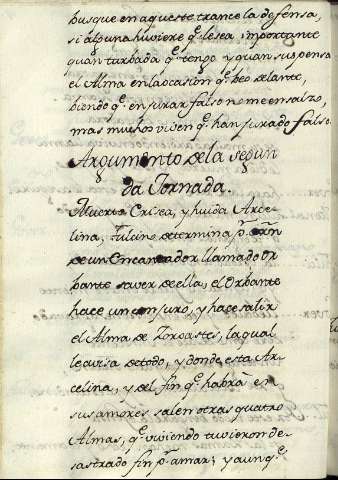 busque en aqueste trance la defensa,
si alguna huviere q̃ le sea importante
quan turbada q̃ tengo y quan suspensa
el Alma en la ocasion q̃ beo delante,
biendo q̃ en jurar falso no me ensuizo,
mas muchos viven q̃ han jurado falso.
Argumento de la segun
da Jornada.
Muerta Crisea, y huida Arce-
lina, Fulcino determina p.r orn
de un Encantador llamado Or
bante saver de ella, el Orbante
hace un conjuro, y hace salir
el Alma de Zoroastes, la qual
le avisa de todo, y donde esta Ar-
celina, y del fin q̃ habrà en
sus amores salen otras quatro
Almas, q̃ viviendo tuvieron de-
sastrado fin p.r amar; y aunq.e